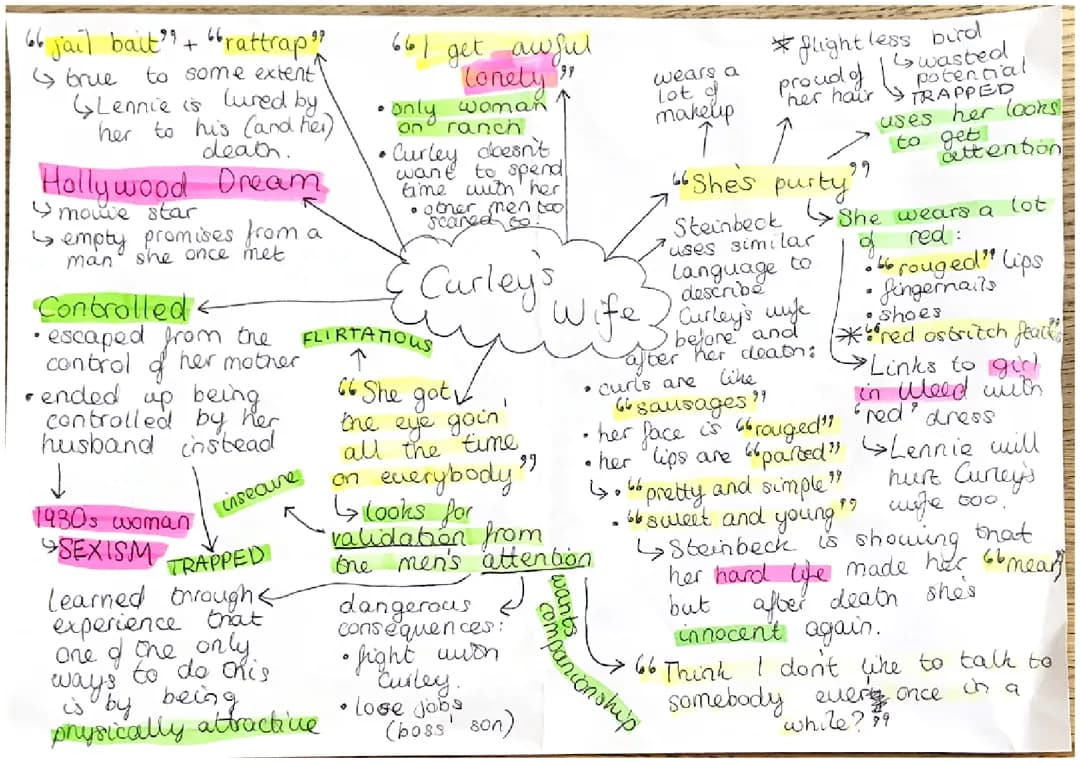 Curley's
Wife
"jail bait" + "rattrap"
↳ true to some extent
↳ Lennie is lured by
her to his (and her)
death.
Hollywood Dream
↳ movie star
↳ empty promises from a
man she once met
Controlled
• escaped from the
control of her mother
• ended up being
controlled by her
husband instead
1930s woman
↳ SEXISM
TRAPPED
"I get awful
lonely"
• only woman
on ranch
• Curley doesn't
want to spend
time with her
• other men too
scared to.
FLIRTATIOUS
"She got
the eye goin'
all the time
on everybody"
↳ looks for
validation from
the men's attention
insecure
learned through
experience that
one of the only
ways to do this
is by being
physically attractive
dangerous
consequences:
• fight with
Curley.
• lose jobs
(boss' son)
wants
companionship
"Think I don't like to talk to
somebody every once in a
while?"
"She's purty"
wears a
lot of
makeup
proud of
her hair
uses her looks
to get
attention
* flightless bird
↳ wasted
potential
↳ TRAPPED
↳ She wears a lot
of red:
• "rouged" lips
• fingernails
• shoes
* • "red ostritch
↳ Links to girl
in Weed with
"red" dress
↳ Lennie will
hurt Curley's
wife too.
Steinbeck
uses similar
language to
describe
Curley's wife
before and
after her death:
• curls are like
"sausages"
• her face is "rouged"
• her lips are "parted"
↳ • "pretty and simple"
• "sweet and young"
↳ Steinbeck is showing that
her hard life made her "mean"
but after death she's
innocent again.